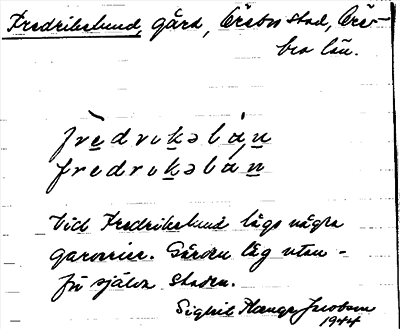 Fredrikslund, gård, Örebro stad, Öre-
bro län.
frèdrıkəlún
frédrıkəlún
Vid Fredrikslund lågo några
garverier. Gården låg utan-
för själva staden.
Sigbrit Plænge Jacobson
1944